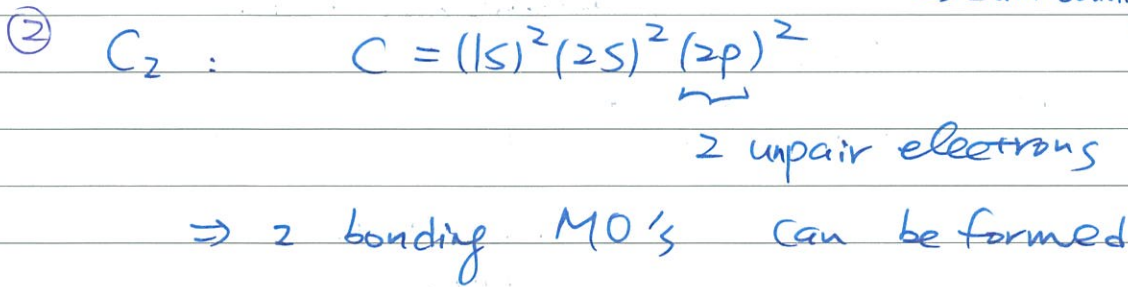 ② C₂ : C = (1s)² (2s)² (2p)²
2 unpair electrons
⇒ 2 bonding MO's can be formed